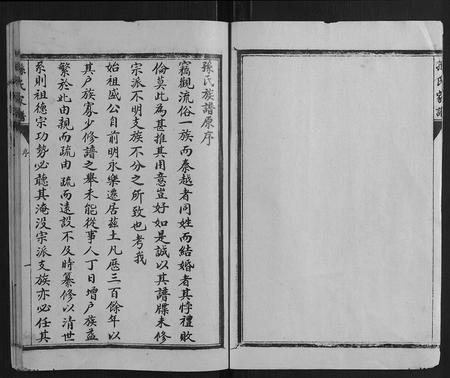 孫氏族譜原序
竊觀流俗一族而秦越者同姓而結婚者其悖禮敗
倫莫此為甚推其用意豈好如是誠以其譜牒未修
宗派不明支族不分之所致也考我
始祖盛公自前明永樂遷居茲土凡歷三百餘年以
其戶族寡少修譜之舉未能從事人丁日增戶族益
繁於此由親而疏由疏而遠設不及時纂修以清世
系則祖德宗功勢必聽其淹沒宗派支族亦必任其
孫氏家譜
序
一
孫氏家譜